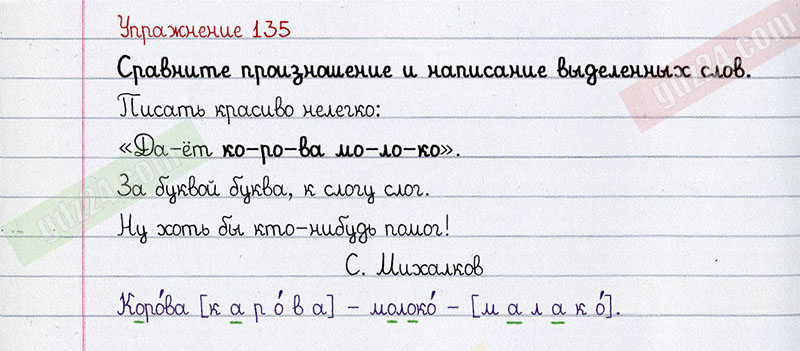 Упражнение 135
Сравните произношение и написание выделенных слов.
Писать красиво нелегко:
«Да-ёт ко-ро-ва мо-ло-ко».
За буквой буква, к слогу слог.
Ну хоть бы кто-нибудь помог!
С. Михалков
Коро́ва [к а р о́ в а] – молоко́ – [м а л а к о́].
gdz24.com
gdz24.com